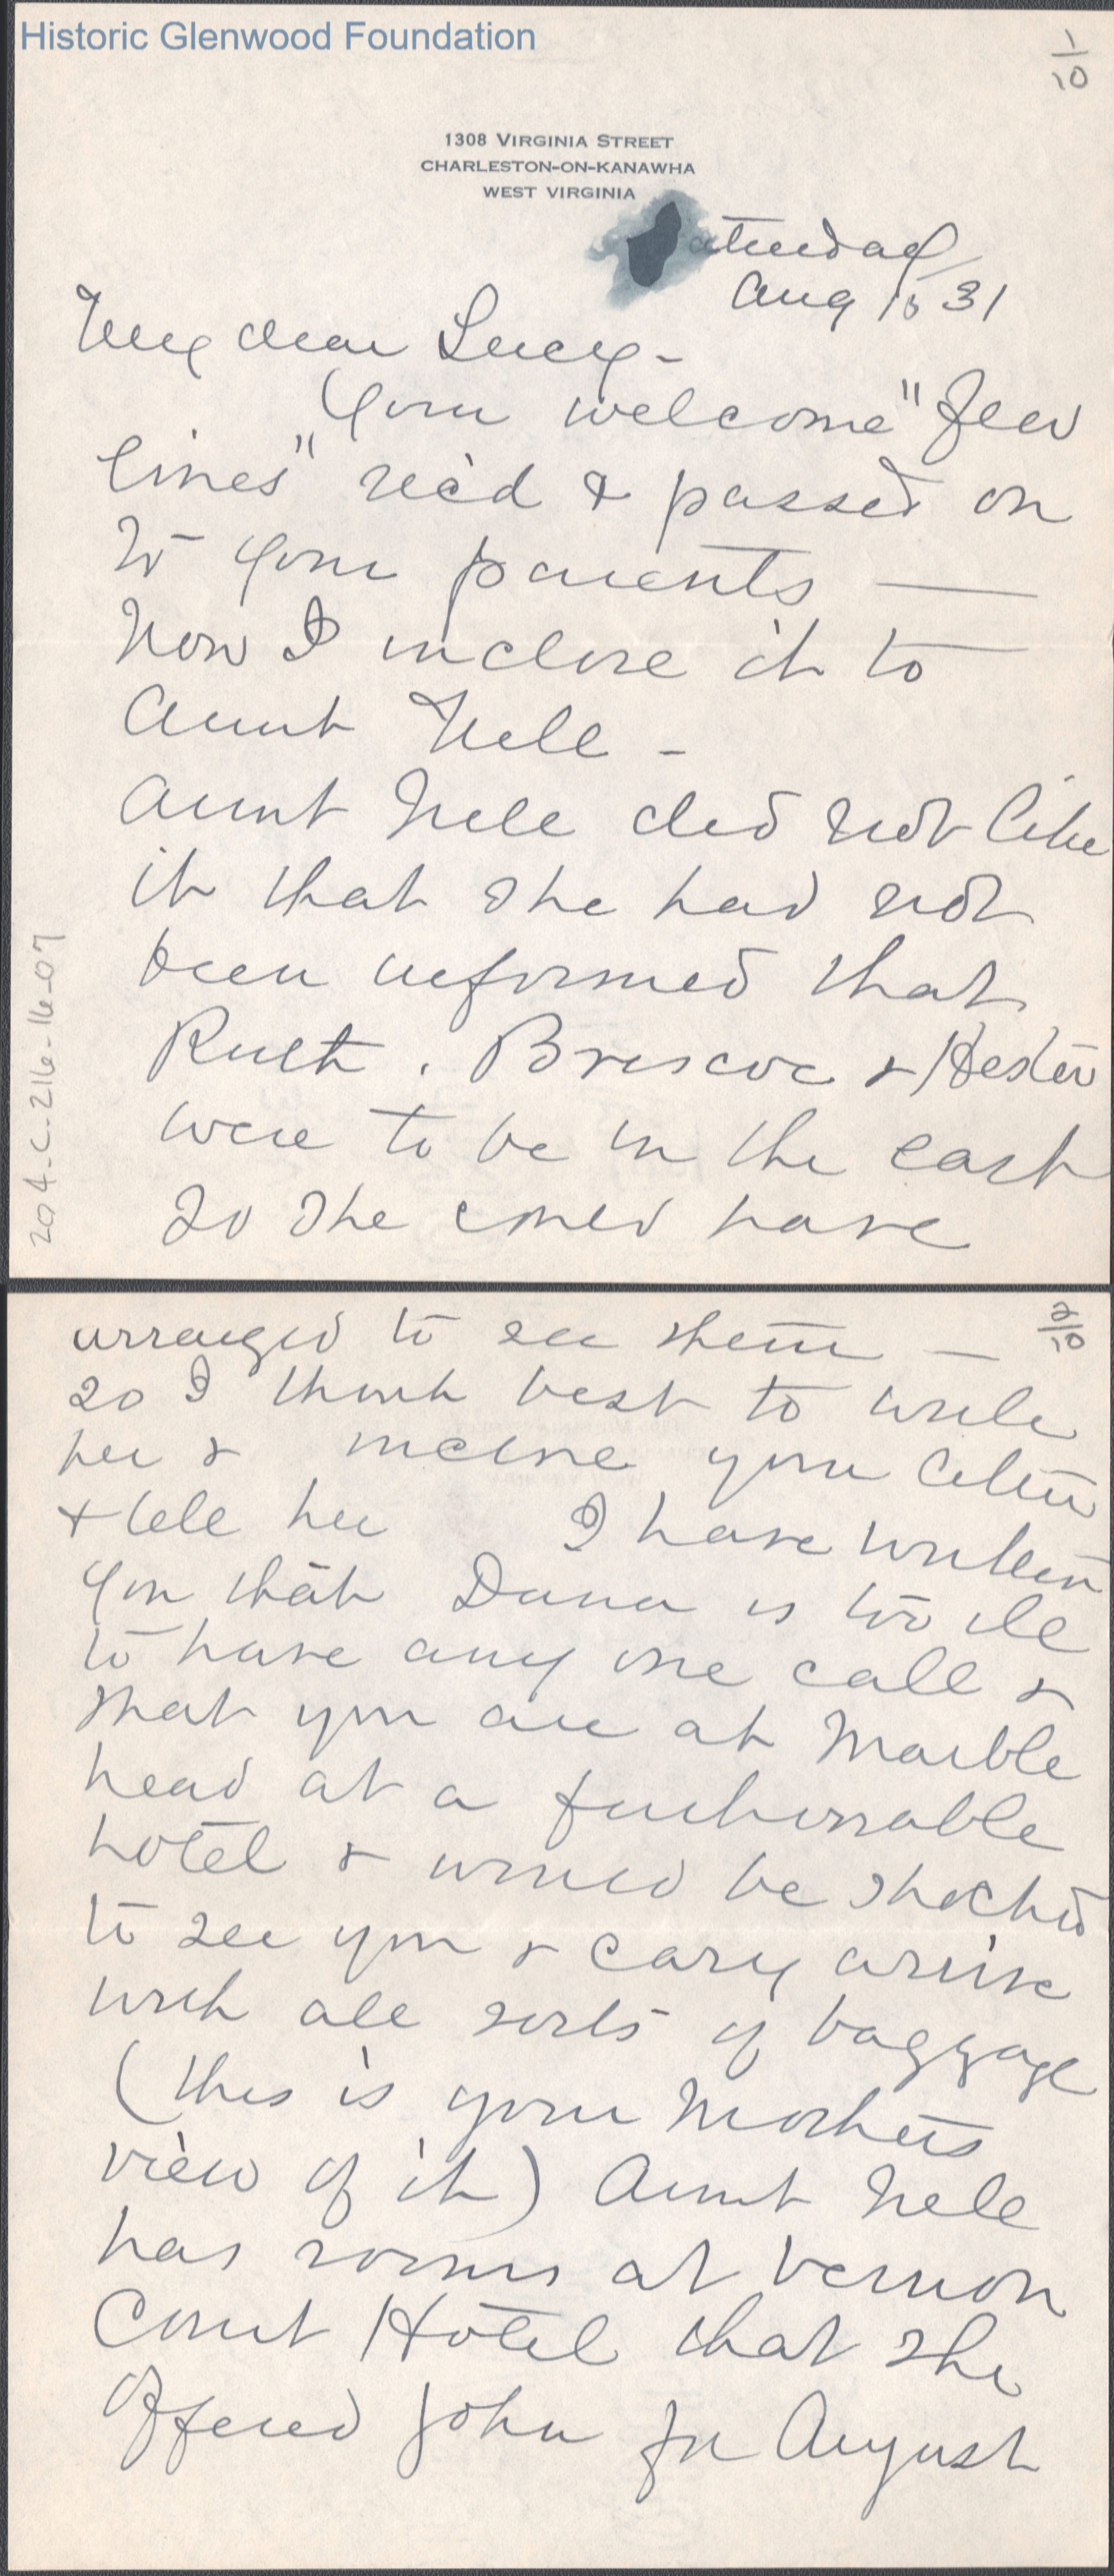 Historic Glenwood Foundation
1/10
1308 VIRGINIA STREET
CHARLESTON-ON-KANAWHA
WEST VIRGINIA
Saturday
Aug 15 31
My dear Lucy -
Your welcome "few
lines" rec'd & passed on
to your parents —
Now I inclose it to
Aunt Nell -
Aunt Nell did not like
it that she had not
been informed that
Ruth. Briscoe & Hester
were to be in the east
so she could have
204.C.216.16-07
2/10
arranged to see them —
so I think best to write
her & inclose your letter
& tell her I have written
you that Dana is too ill
to have any one call &
that you are at Marble
head at a fashionable
hotel & would be shocked
to see you & Cary arrive
with all sorts of baggage
(this is your Mothers
view of it) Aunt Nell
has rooms at Vernon
Court Hotel that she
offered John for August